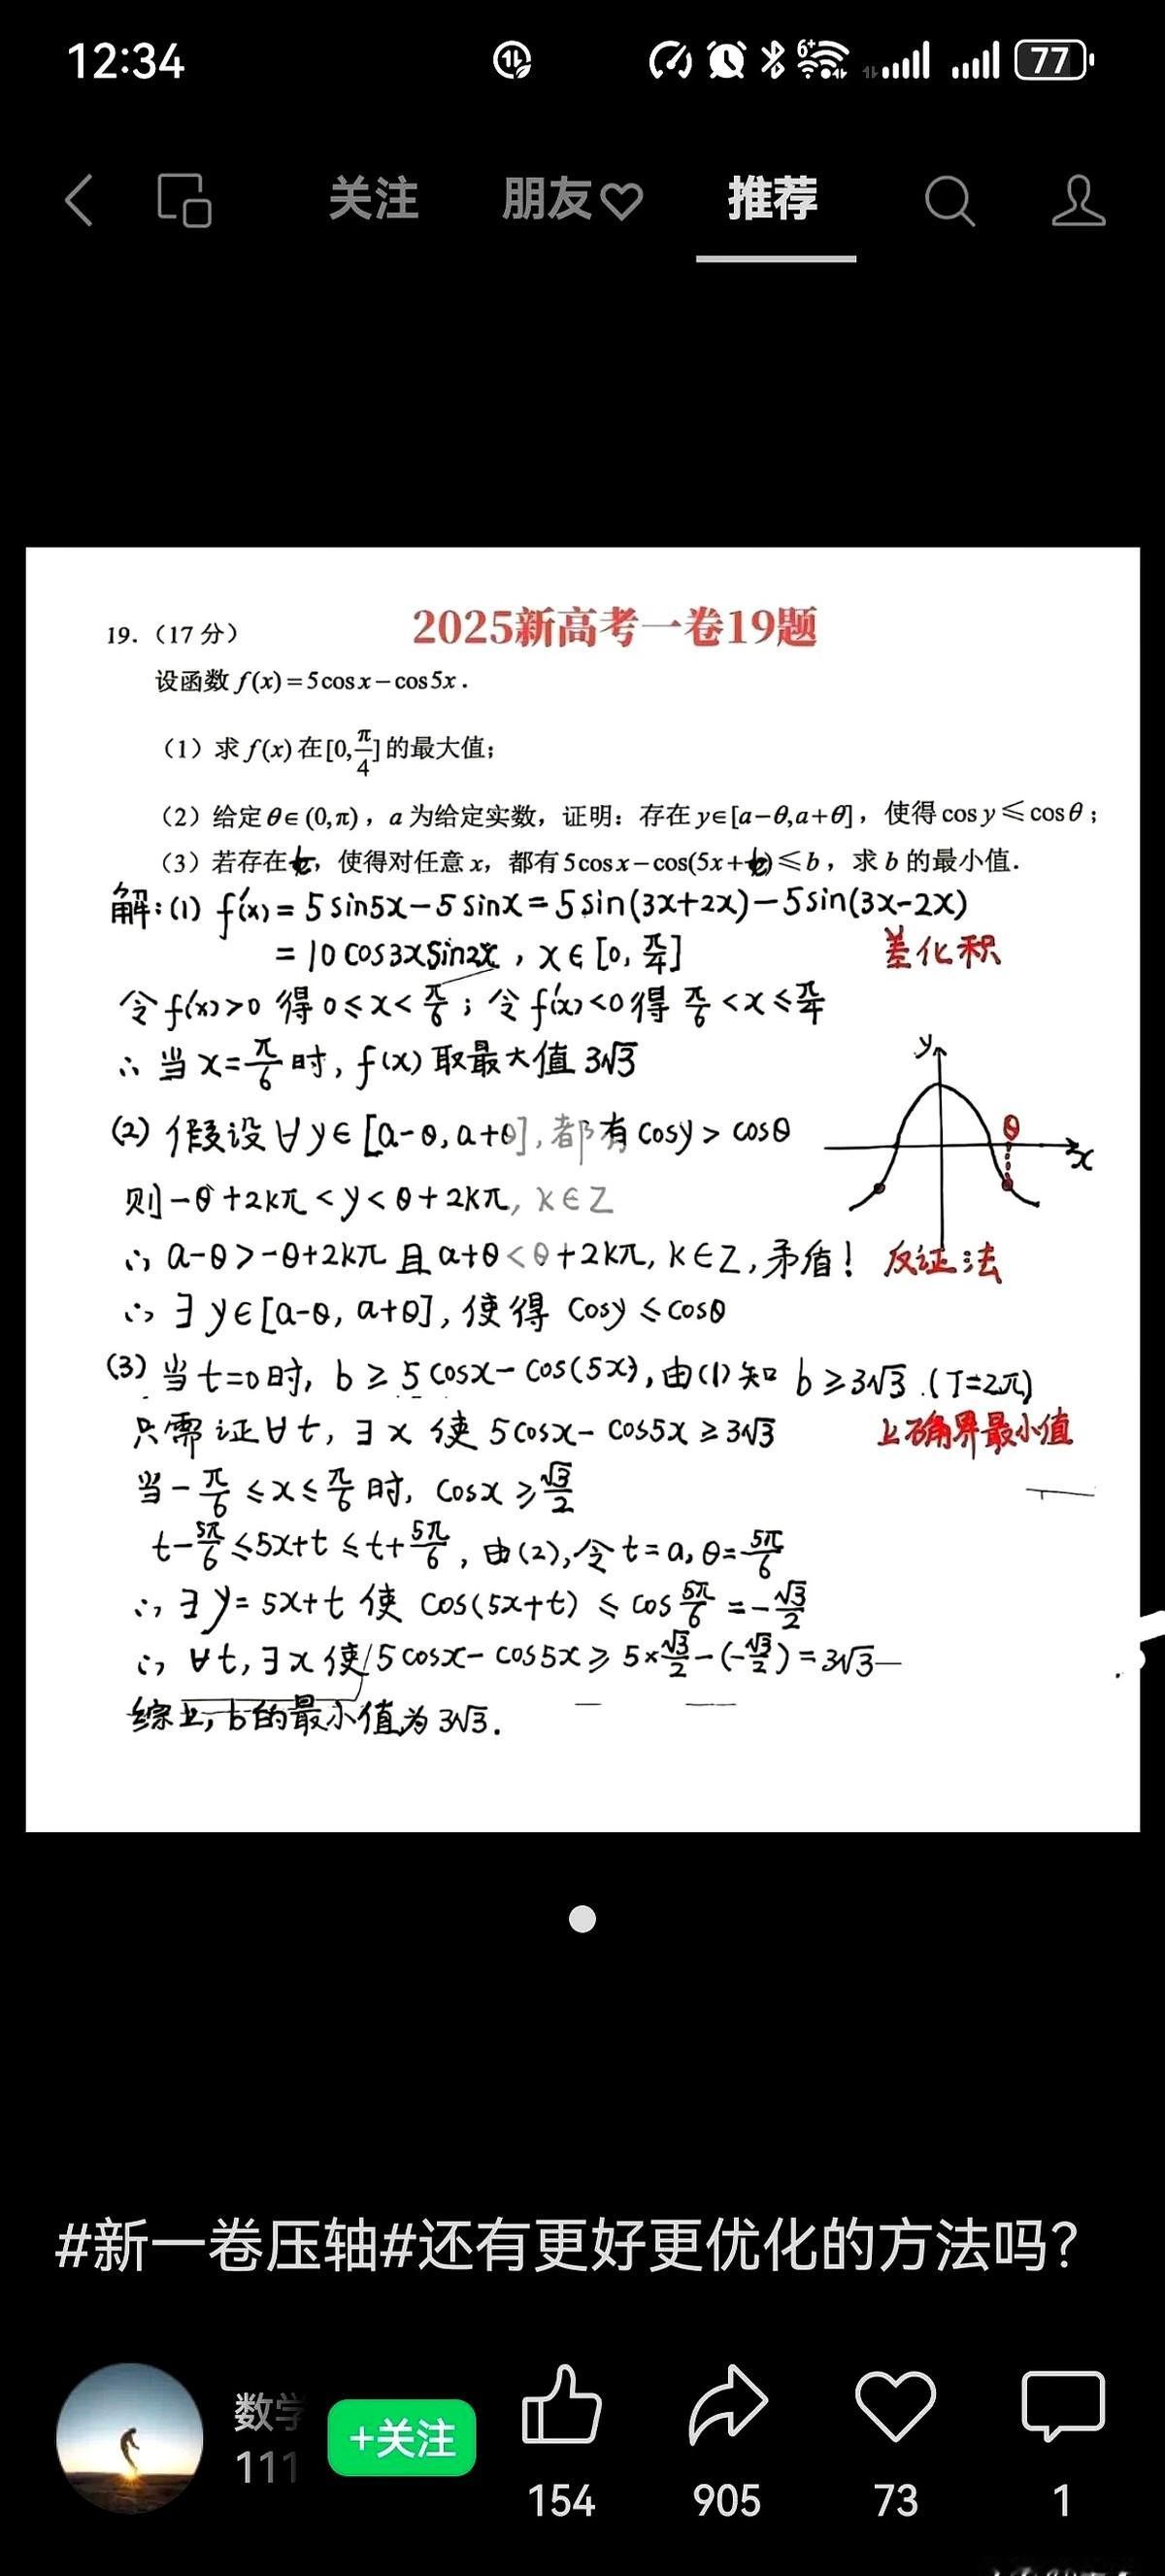 12:34
6+
77
关注 朋友♡ 推荐
2025新高考一卷19题
19.（17 分）
设函数 f(x)=5cosx−cos5x．
（1）求 f(x) 在[0,π/4]的最大值；
（2）给定θ∈(0,π)，a 为给定实数，证明：存在 y∈[a−θ,a+θ]，使得 cos y≤cosθ；
（3）若存在t，使得对任意 x，都有 5cosx−cos(5x+t)≤b，求 b 的最小值．
解:(1) f'(x)= 5sin5x−5sinx=5sin(3x+2x)−5sin(3x−2x)
=10cos3xsin2x，x∈[0,π/4]
差化积
令f'(x)>0 得 0≤x<π/6；令f'(x)<0得 π/6<x≤π/4
∴ 当x=π/6时, f(x)取最大值 3√3
y
θ
x
(2) 假设∀y∈[a-θ,a+θ],都有cosy>cosθ
则-θ+2kπ<y<θ+2kπ, k∈Z
∴ a-θ>-θ+2kπ 且 a+θ<θ+2kπ, k∈Z,矛盾！
反证法
∴ ∃ y∈[a-θ, a+θ],使得 cosy≤cosθ
(3) 当t=0时, b≥5cosx−cos(5x),由(1)知 b≥3√3.(T=2π)
只需证∀t,∃x 使 5cosx−cos5x≥3√3
上确界最小值
当-π/6≤x≤π/6时, cosx≥√3/2
t-5π/6≤5x+t≤t+5π/6, 由(2),令t=a,θ=5π/6
∴ ∃y=5x+t 使 cos(5x+t)≤cos5π/6=-√3/2
∴ ∀t,∃x使 5cosx−cos5x≥5×√3/2−(-√3/2)=3√3
综上, b的最小值为3√3.
#新一卷压轴#还有更好更优化的方法吗？
数学
111
+关注
154 905 73 1